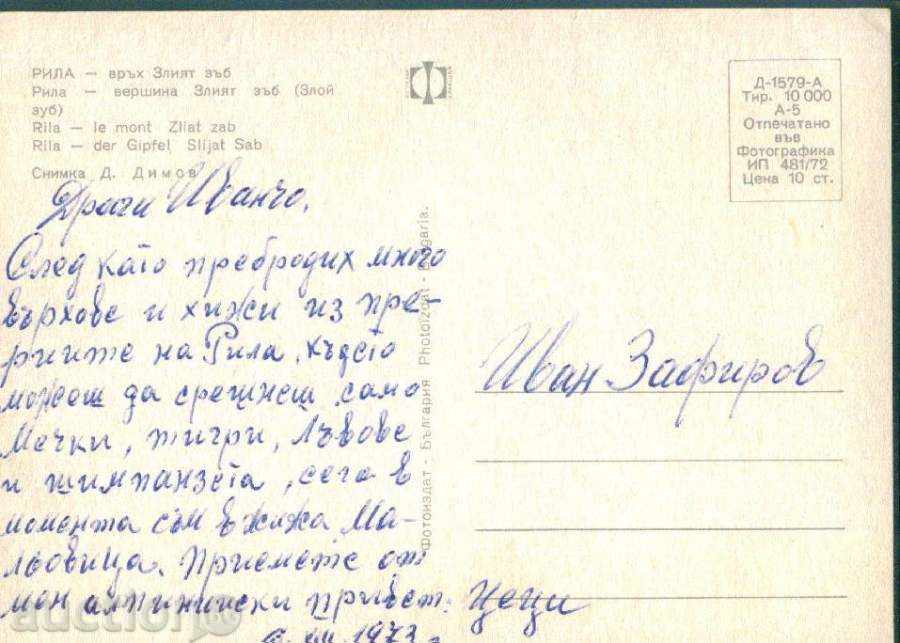 РИЛА — връх Злият зъб
Рила — вершина Злият зъб (Злой
зуб)
Rila — le mont Zliat zab
Rila — der Gipfel Slijat Sab
Снимка Д. Димов
Д-1579-А
Тир. 10 000
А-5
Отпечатано
във
Фотографика
ИП 481/72
Цена 10 ст.
Фотоиздат - България Photoizdat - Bulgaria.
Драги Иванчо.
След като пребродих много
върхове и хижи из пре-
риите на Рила, където
можеш да срещнеш само
Мечки, тигри, Лъвове
и шимпанзета, сега в
момента съм в хижа Ма-
льовица. Приемете от
мен алпинийски привет. Цеци
1973 г
Иван Зафиров